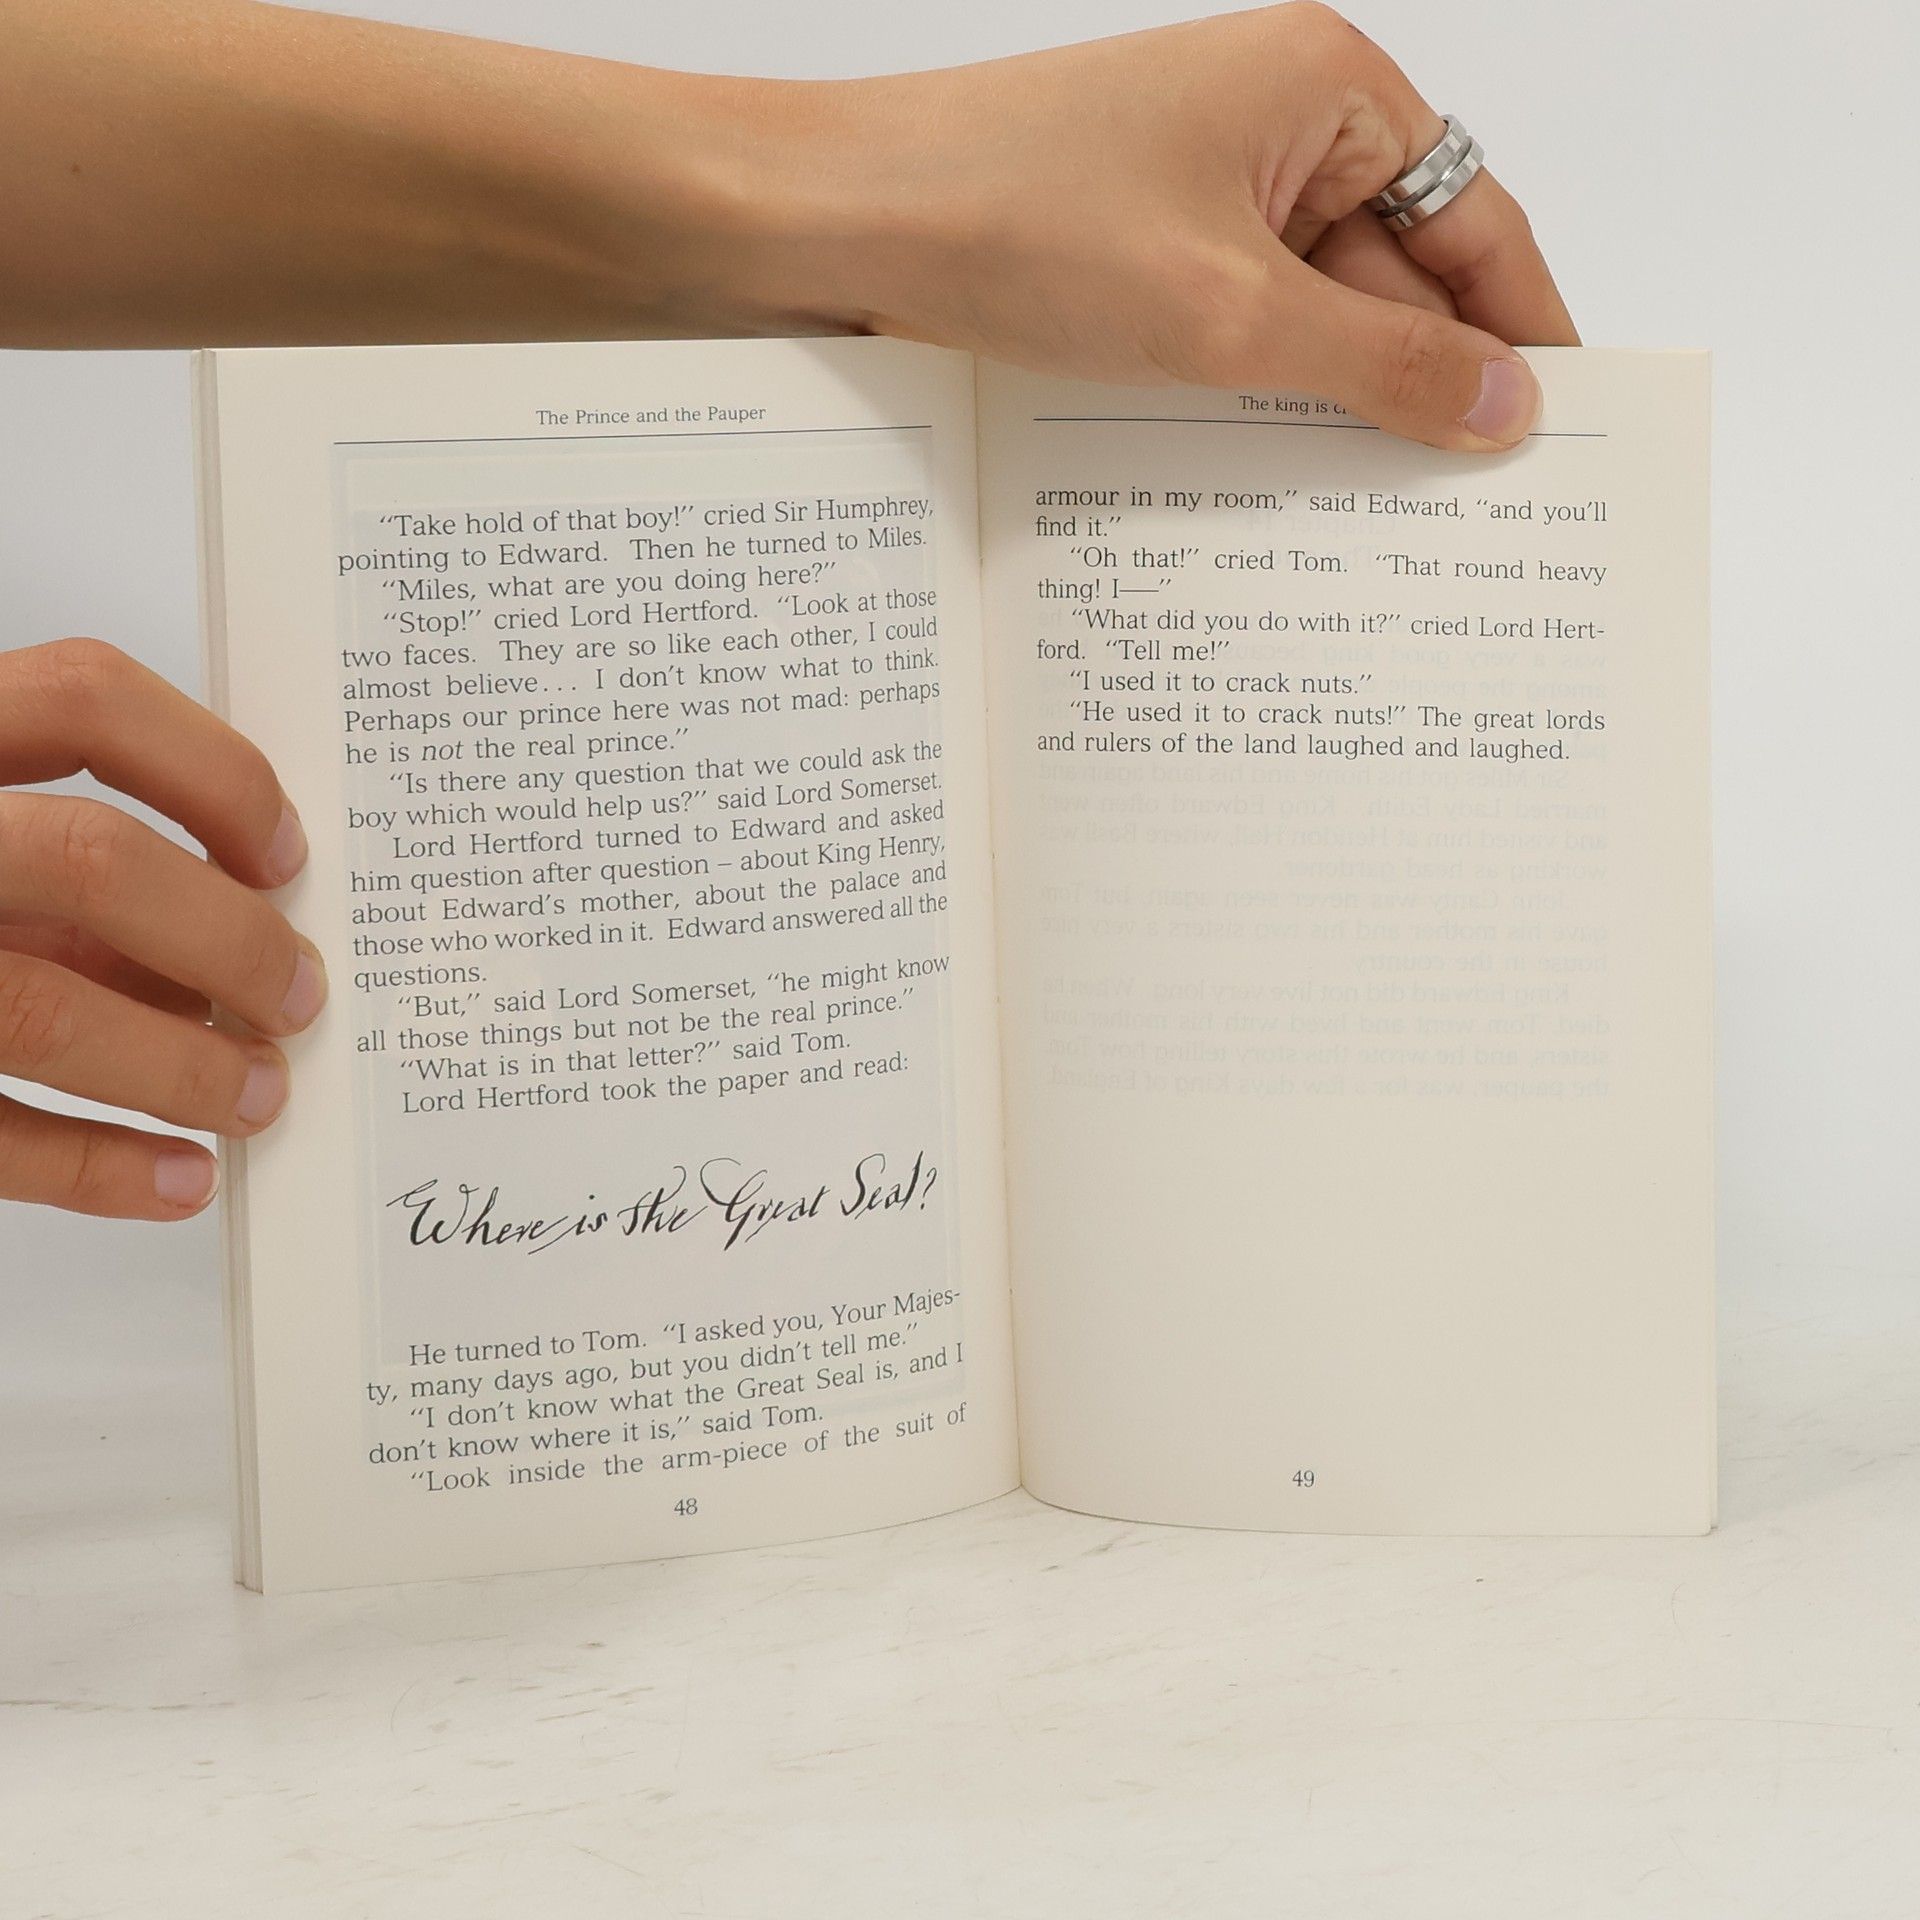 The Prince and the Pauper
“Take hold of that boy!” cried Sir Humphrey,
pointing to Edward. Then he turned to Miles.
“Miles, what are you doing here?”
“Stop!” cried Lord Hertford. “Look at those
two faces. They are so like each other, I could
almost believe... I don’t know what to think.
Perhaps our prince here was not mad: perhaps
he is not the real prince.”
“Is there any question that we could ask the
boy which would help us?” said Lord Somerset.
Lord Hertford turned to Edward and asked
him question after question – about King Henry,
about Edward’s mother, about the palace and
those who worked in it. Edward answered all the
questions.
“But,” said Lord Somerset, “he might know
all those things but not be the real prince.”
“What is in that letter?” said Tom.
Lord Hertford took the paper and read:
Where is the Great Seal?
He turned to Tom. “I asked you, Your Majes-
ty, many days ago, but you didn’t tell me.”
“I don’t know what the Great Seal is, and I
don’t know where it is,” said Tom.
“Look inside the arm-piece of the suit of
48
The king is
armour in my room,” said Edward, “and you’ll
find it.”
“Oh that!” cried Tom. “That round heavy
thing! I—”
“What did you do with it?” cried Lord Hert-
ford. “Tell me!”
“I used it to crack nuts.”
“He used it to crack nuts!” The great lords
and rulers of the land laughed and laughed.
49